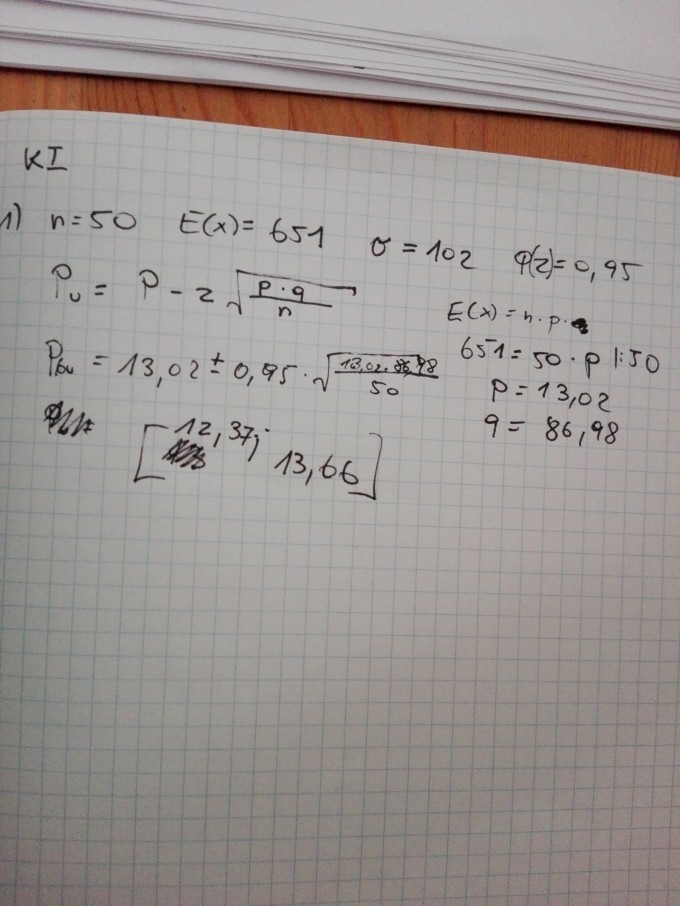 KI
1) n=50 E(x)= 651 σ = 102 φ(z)=0,95
Pu = P - z √(p·q / n)
E(x) = n·p·
Pou = 13,02 ± 0,95 · √(13,02·86,98 / 50)
651 = 50 · p |:50
p = 13,02
q = 86,98
[12,37; 13,66]